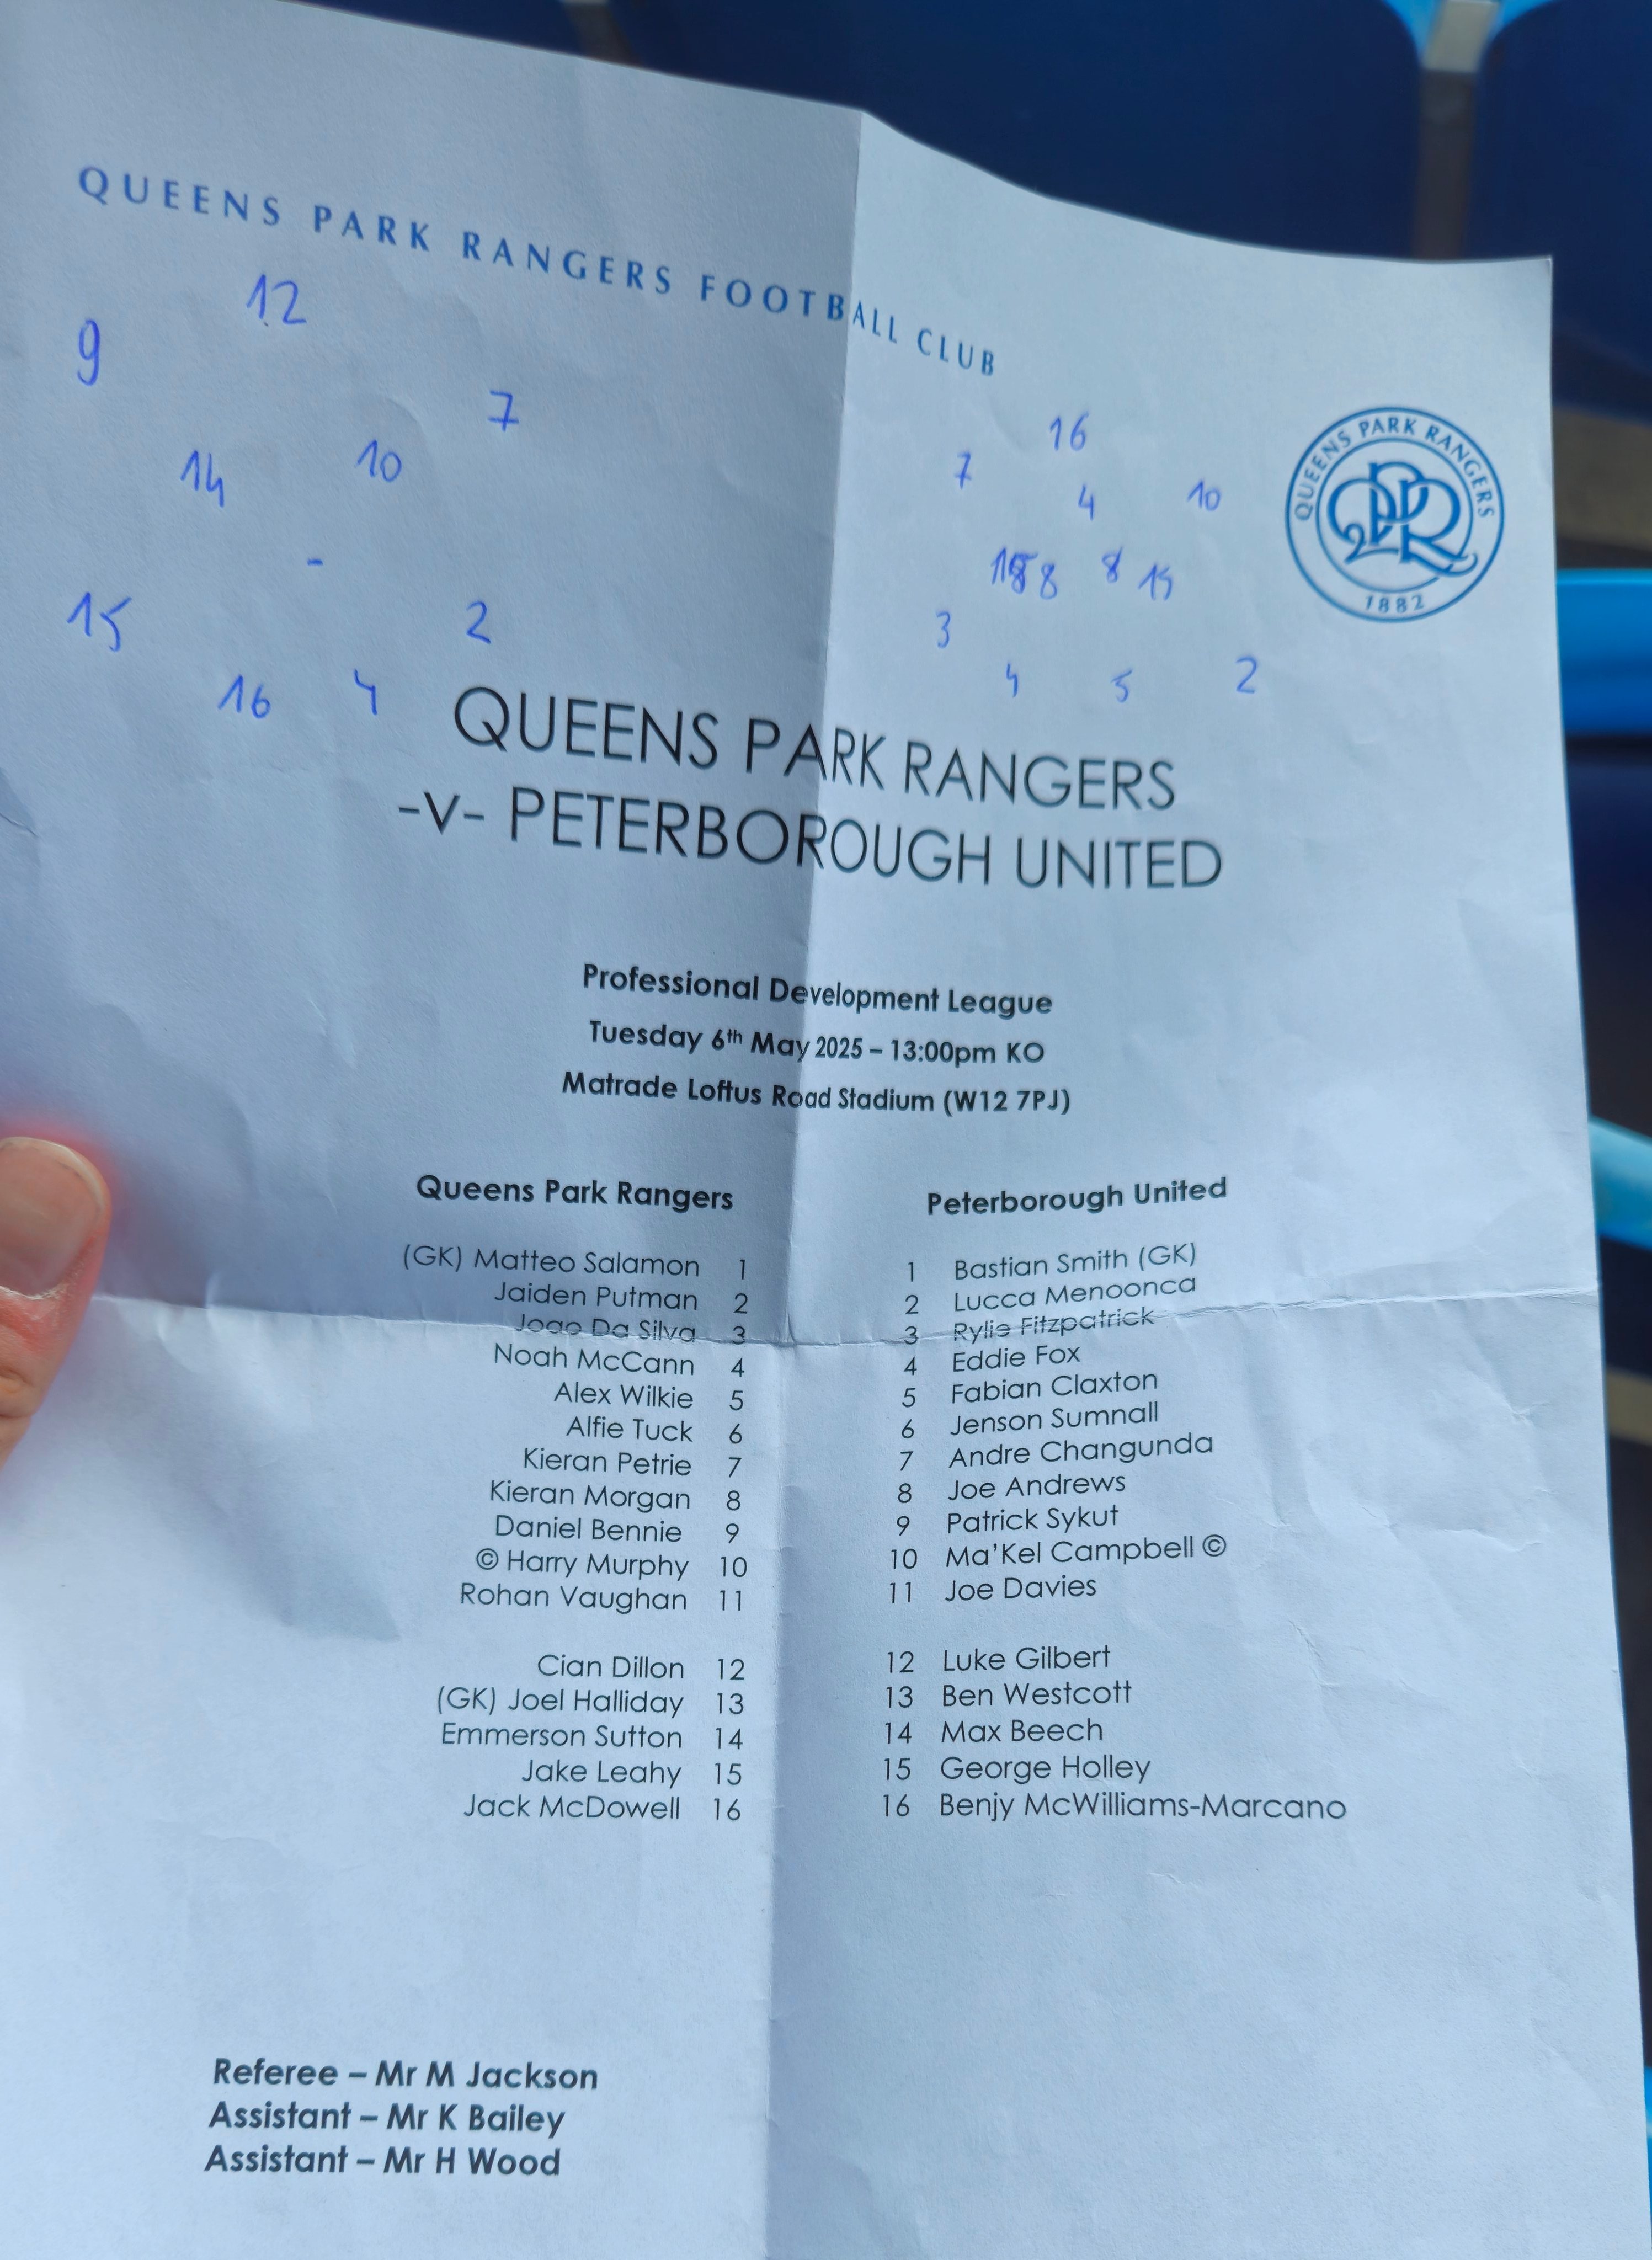 QUEENS PARK RANGERS FOOTBALL CLUB
12
9
7
14
10
-
15
2
16
4
16
7
4
10
8
8
15
3
4
5
2
QUEENS PARK RANGERS
1882
QUEENS PARK RANGERS
-v- PETERBOROUGH UNITED
Professional Development League
Tuesday 6th May 2025 – 13:00pm KO
Matrade Loftus Road Stadium (W12 7PJ)
Queens Park Rangers Peterborough United
(GK) Matteo Salamon 1 1 Bastian Smith (GK)
Jaiden Putman 2 2 Lucca Menoonca
Joao Da Silva 3 3 Rylie Fitzpatrick
Noah McCann 4 4 Eddie Fox
Alex Wilkie 5 5 Fabian Claxton
Alfie Tuck 6 6 Jenson Sumnall
Kieran Petrie 7 7 Andre Changunda
Kieran Morgan 8 8 Joe Andrews
Daniel Bennie 9 9 Patrick Sykut
© Harry Murphy 10 10 Ma'Kel Campbell ©
Rohan Vaughan 11 11 Joe Davies
Cian Dillon 12 12 Luke Gilbert
(GK) Joel Halliday 13 13 Ben Westcott
Emmerson Sutton 14 14 Max Beech
Jake Leahy 15 15 George Holley
Jack McDowell 16 16 Benjy McWilliams-Marcano
Referee – Mr M Jackson
Assistant – Mr K Bailey
Assistant – Mr H Wood